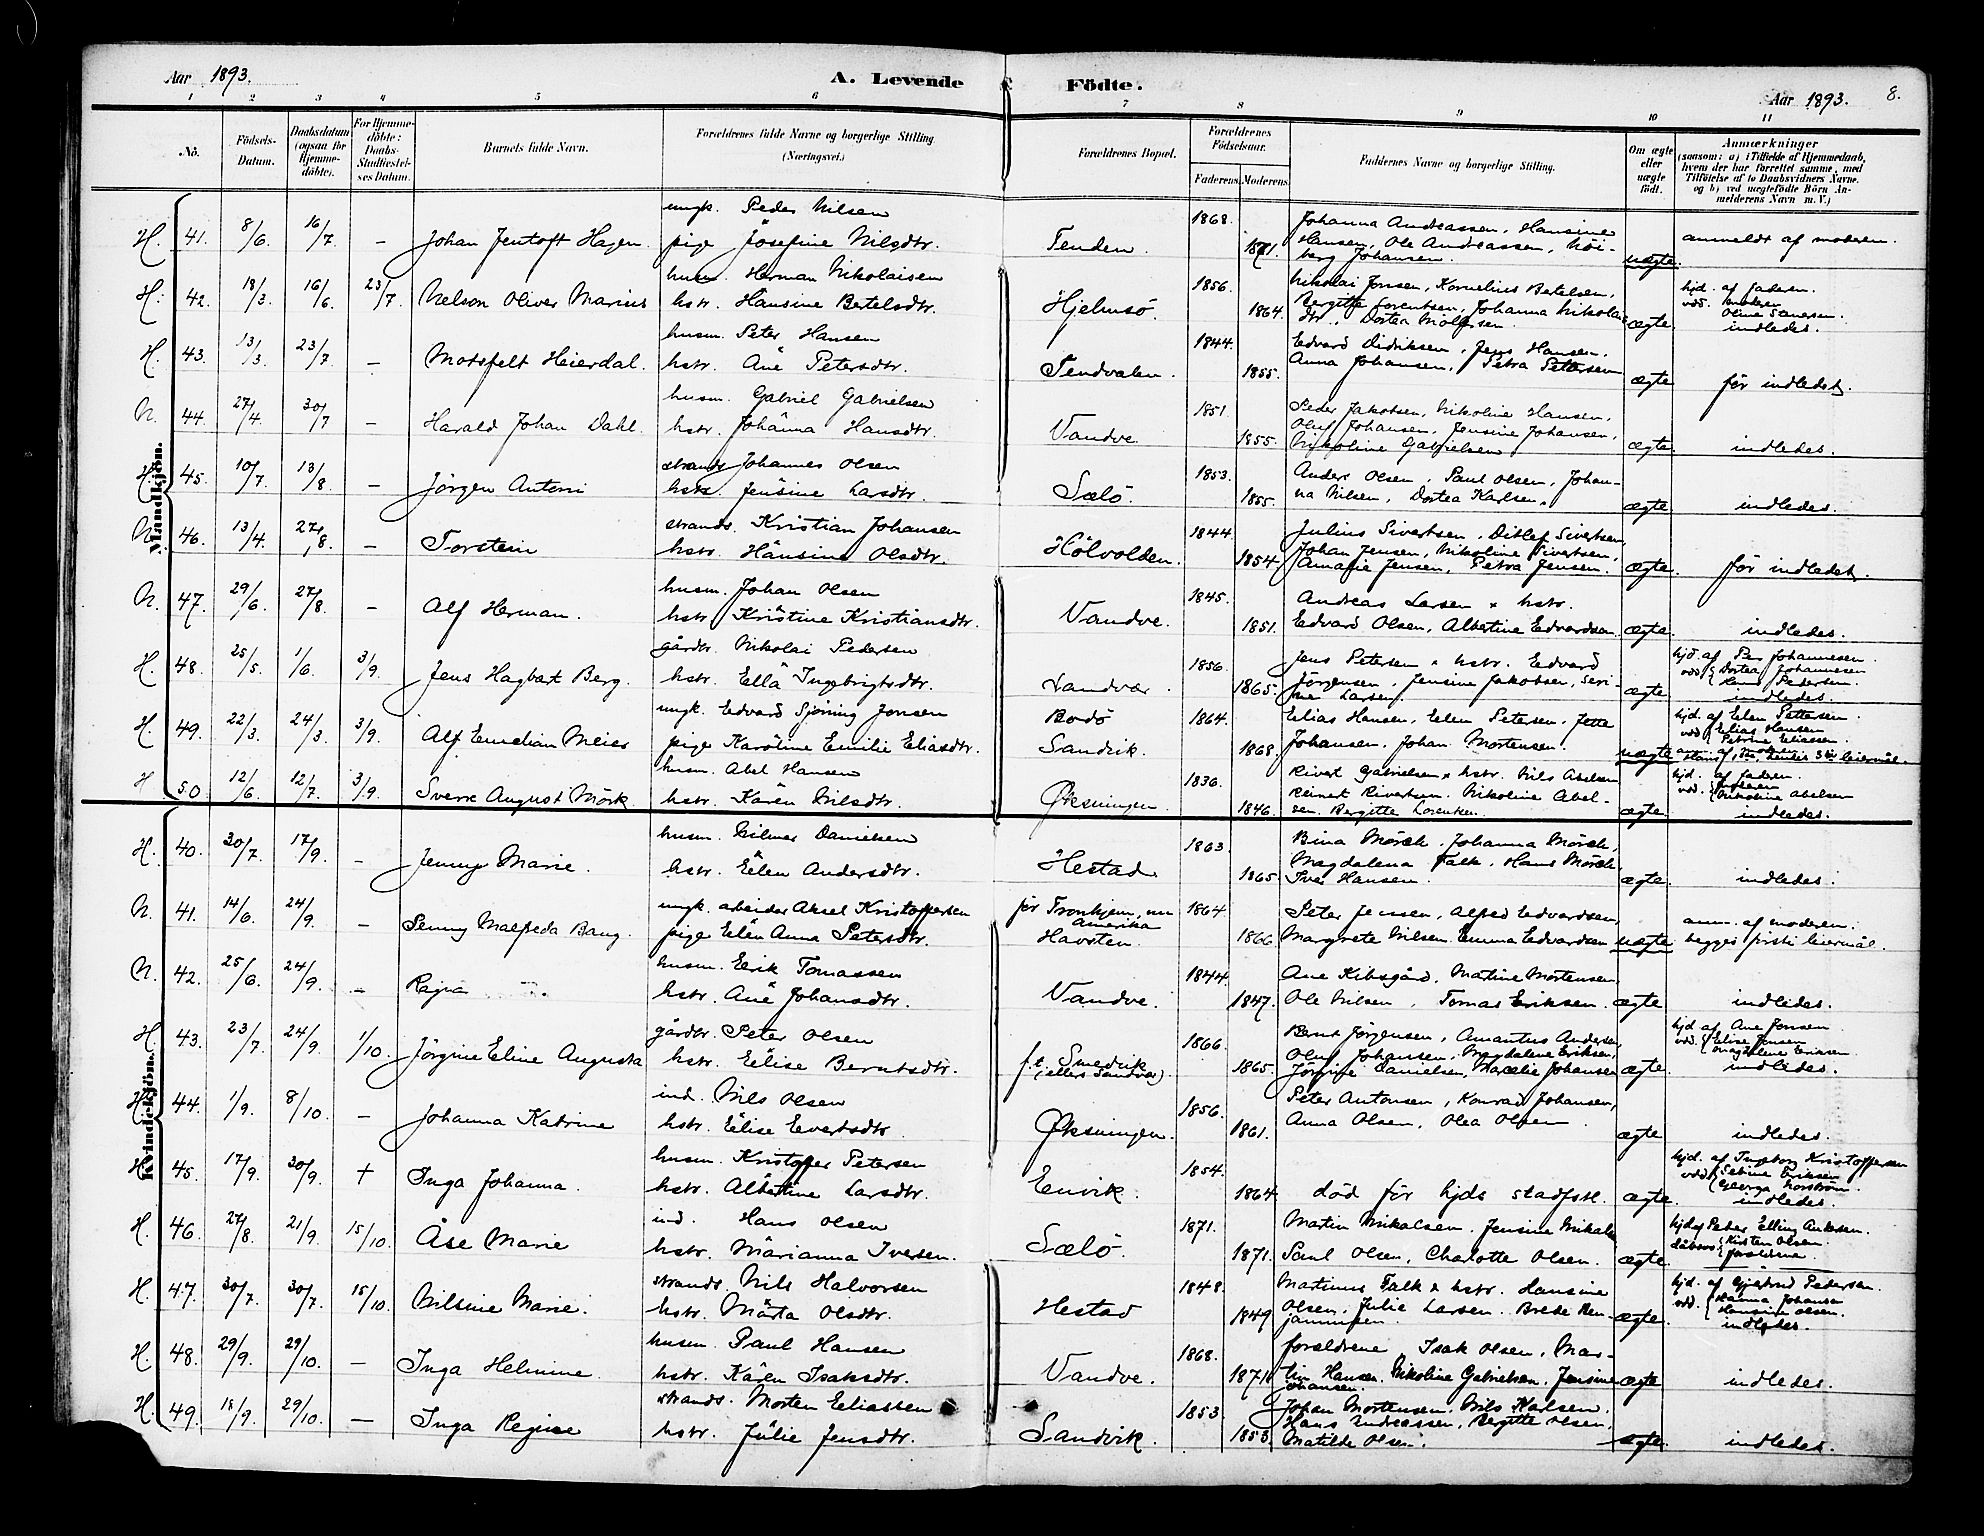 Aar 1893. A. Levende Födte. Aar 1893. 8.
1 2 3 4 5 6 7 8 9 10 11
No. Födsels-Datum. Daabsdatum (ogsaa for Hjemmedöbte). For Hjemmedöbte: Daabs-Stadfæstelses Datum. Barnets fulde Navn. Forældrenes fulde Navne og borgerlige Stilling (Næringsvei.) Forældrenes Bopæl. Forældrenes Födselsaar. Faderens. Moderens. Faddernes Navne og borgerlige Stilling. Om ægte eller uægte födt. Anmærkninger (saasom: a) i Tilfælde af Hjemmedaab, hvem der har forrettet samme, med Tilföielse af to Daabsvidners Navne. og b) ved uægtefödte Börn Anmelderens Navn m. V.)
Mandkjön.
ungk. Peder Nilsen 1868. Johanna Andreassen, Hansine
H. 41. 8/6 16/7 – Johan Jentoft Hagen. pige Josefine Nilsdtr. Tenden. 1871. Hansen, Ole Andreassen, Höiberg Johansen. uægte. anmeldt af moderen.
husm. Herman Nikolaisen 1856. Nikolai Jonsen, Kornelius Bertelsen, hjd. af faderen.
H. 42. 18/3 16/6 23/7 Nelson Oliver Marius hstr. Hansine Bertelsdtr. Hjelmsö. 1864. Bergitte Lorentsen, Johanna Nikolaisdtr., Dortea ægte vdd. moderen indledes.
husm. Peter Hansen 1844. Edvard Didriksen, Jens Hansen.
H. 43. 13/3 23/7 – Motsfelt Heierdal. hstr. Ane Petersdtr. Tendvalen. 1855. Anna Johansen, Petra Pettersen ægte för indledet.
husm. Gabriel Gabrielsen 1851. Peder Jakobsen, Nikoline Hansen,
N. 44. 27/4 30/7 – Harald Johan Dahl. hstr. Johanna Hansdtr. Vandve 1855. Oluf Johansen, Jensine Johansen, Nikoline Gabrielsen ægte. indledes.
strands. Johannes Olsen 1853. Anders Olsen, Paul Olsen, Johan-
H. 45. 10/7 13/8 – Jörgen Antoni hstr. Jensine Larsdtr. Sælö. 1855. na Nilsen, Dortea Karlsen. ægte indledes.
strands. Kristian Johansen 1844. Julius Sivertsen, Ditlef Sivertsen,
N. 46. 13/4. 27/8. – Torstein hstr. Hansine Olsdtr. Hölvolden. 1854. Johan Jensen, Nikoline Sivertsen, Amalie Jensen, Petra Jensen. ægte. för indledet.
husm. Johan Olsen 1845. Andreas Larsen & hstr.
N. 47. 29/6. 27/8. – Alf Herman. hstr. Kristine Kristiansdtr. Vandve. 1851. Edvard Olsen, Albertine Edvardsen. ægte. indledes.
gårdbr. Nikolai Pedersen 1856. Jens Petersen & hstr. Edvard hjd. af Per Johannesen.
H. 48. 25/5. 1/6. 3/9. Jens Hagbart Berg. hstr. Ella Ingebrigtsdtr. Sandvær. 1865. Jörgensen, Jensine Jakobsen, Serine Larsen ægte vdd. Dortea Johannesen Knud Pedersen. indledes.
ungk. Edvard Sjöning Jonsen Bodö 1864. Elias Hansen, Elen Petersen, Jette hjd. af Elen Pettersen.
H. 49. 22/3. 24/3. 3/9. Alf Emelian Meier pige Karoline Emilie Eliasdtr. Sandvik. 1868. Johansen, Johan Mortensen. uægte vdd. Elias Hansen Petrine Eliassen. anm. af moderen
husm. Abel Hansen 1836. Rivert Gabrielsen & hstr. Nils Abelsen hjd. af faderen.
H 50. 12/6. 12/7. 3/9. Sverre August Mörk hstr. Karen Nilsdtr. Öksningen. 1846. Reinert Rivertsen. Nikoline Abelsen. Bergitte Lorentsen. ægte. vdd. moderen Nikoline Abelsen indledes.
Kvindekjön.
husm. Hilmer Danielsen 1863. Bina Mörch, Johanna Mörch,
H. 40. 30/7. 17/9. – Jenny Marie. hstr. Elen Andersdtr. Hestad 1865. Magdalena Falk, Hans Mörch, Iver Hansen. ægte. indledes.
ungk. arbeider Aksel Kristoffersen för Tronhjem, nu Amerika 1864. Peter Jensen, Alfred Edvardsen, anm. af moderen.
N. 41. 14/6. 24/9. – Jenny Malfreda Bang. pige Elen Anna Petersdtr. Havsten. 1866. Margrete Nilsen. Emma Edvardsen uægte begges første leiermål.
husm. Erik Tomassen 1844. Ane Kibsgård, Martine Mortensen
N. 42. 25/6. 24/9. – Ragna hstr. Ane Johansdtr. Vandve. 1847. Ole Nilsen, Tomas Eriksen. ægte indledes.
gårdbr. Peter Olsen 1866. Bernt Jörgensen, Amantus Andersen hjd af Ane Jonsen
H. 43. 23/7. 24/9. 1/10. Jörgine Eline Augusta hstr. Elise Berntsdtr. f.t. Smedvik (ellers Sandvær). 1865. Oluf Johansen, Magdalene Eriksen, Jörgine Danielsen, Marcelie Johansen ægte vdd. Elise Jensen Magdalene Eriksen indledes.
ind. Nils Olsen 1856. Peter Antonsen, Konrad Johansen,
H. 44. 1/9. 8/10. – Johanna Katrine hstr. Elise Evertsdtr. Öksningen. 1861. Anna Olsen, Olea Olsen ægte indledes.
husm. Kristoffer Petersen 1854. hjd. af Ingeborg Kristoffersen
H. 45. 17/9. 30/9. + Inga Johanna. hstr. Albertine Larsdtr. Envik. 1864. död för hjds stadfst. ægte. vdd. Sebine Eriksen Georg Norström. indledes.
ind. Hans Olsen 1871. Martin Mikalsen. Jensine Mikalsen hjd af Peter Elling Antonsen.
H. 46. 27/8. 21/9. 15/10. Åse Marie hstr. Marianna Iversen. Sælö. 1871. Paul Olsen, Charlotte Olsen. ægte. Kirsten Olsen. forældrene.
strands. Nils Halvorsen 1848. Martinus Falk & hstr. Hansine hjd. af Gjertrud Pedersen.
H. 47. 30/7. 30/7. 15/10. Nilsine Marie. hstr. Marta Olsdtr. Hestad 1849 Olsen, Julie Larsen. Brede Benjaminsen. ægte. vdd. Hanna Johansen Hansine Olsen. indledes.
husm. Paul Hansen 1868. forældrene, Isak Olsen, Mar-
H. 48. 29/9. 29/10. – Inga Helmine. hstr. Karen Isaksdtr. Vandve. 1871. tin Hansen. Nikoline Gabrielsen. Jensine Johansen. ægte indledes.
strands. Morten Eliassen 1853. Johan Mortensen. Nils Karlsen.
H. 49. 18/9. 29/10. – Inga Regine hstr. Julie Jensdtr. Sandvik. 1853. Hans Andreassen, Bergitte Olsen, Matilde Olsen. ægte. indledes.